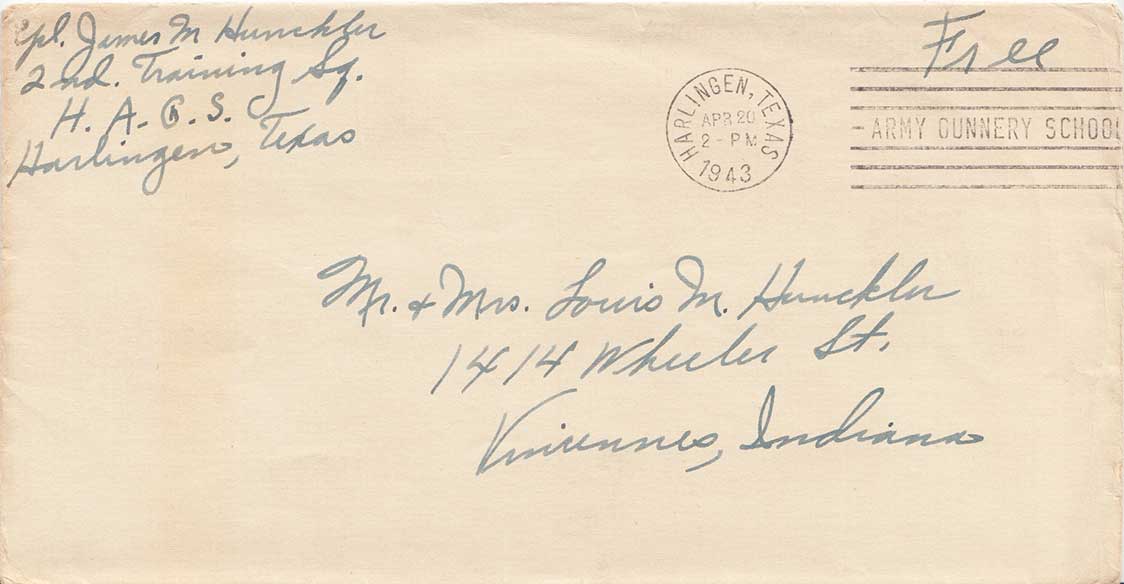 Cpl. James M Hunckler
2nd. Training Sq.
H. A. G. S.
Harlingen, Texas
Free
HARLINGEN, TEXAS
APR 20
2 - PM
1943
ARMY GUNNERY SCHOOL
Mr. + Mrs. Louis M. Hunckler
1414 Wheeler St.
Vincennes, Indiana